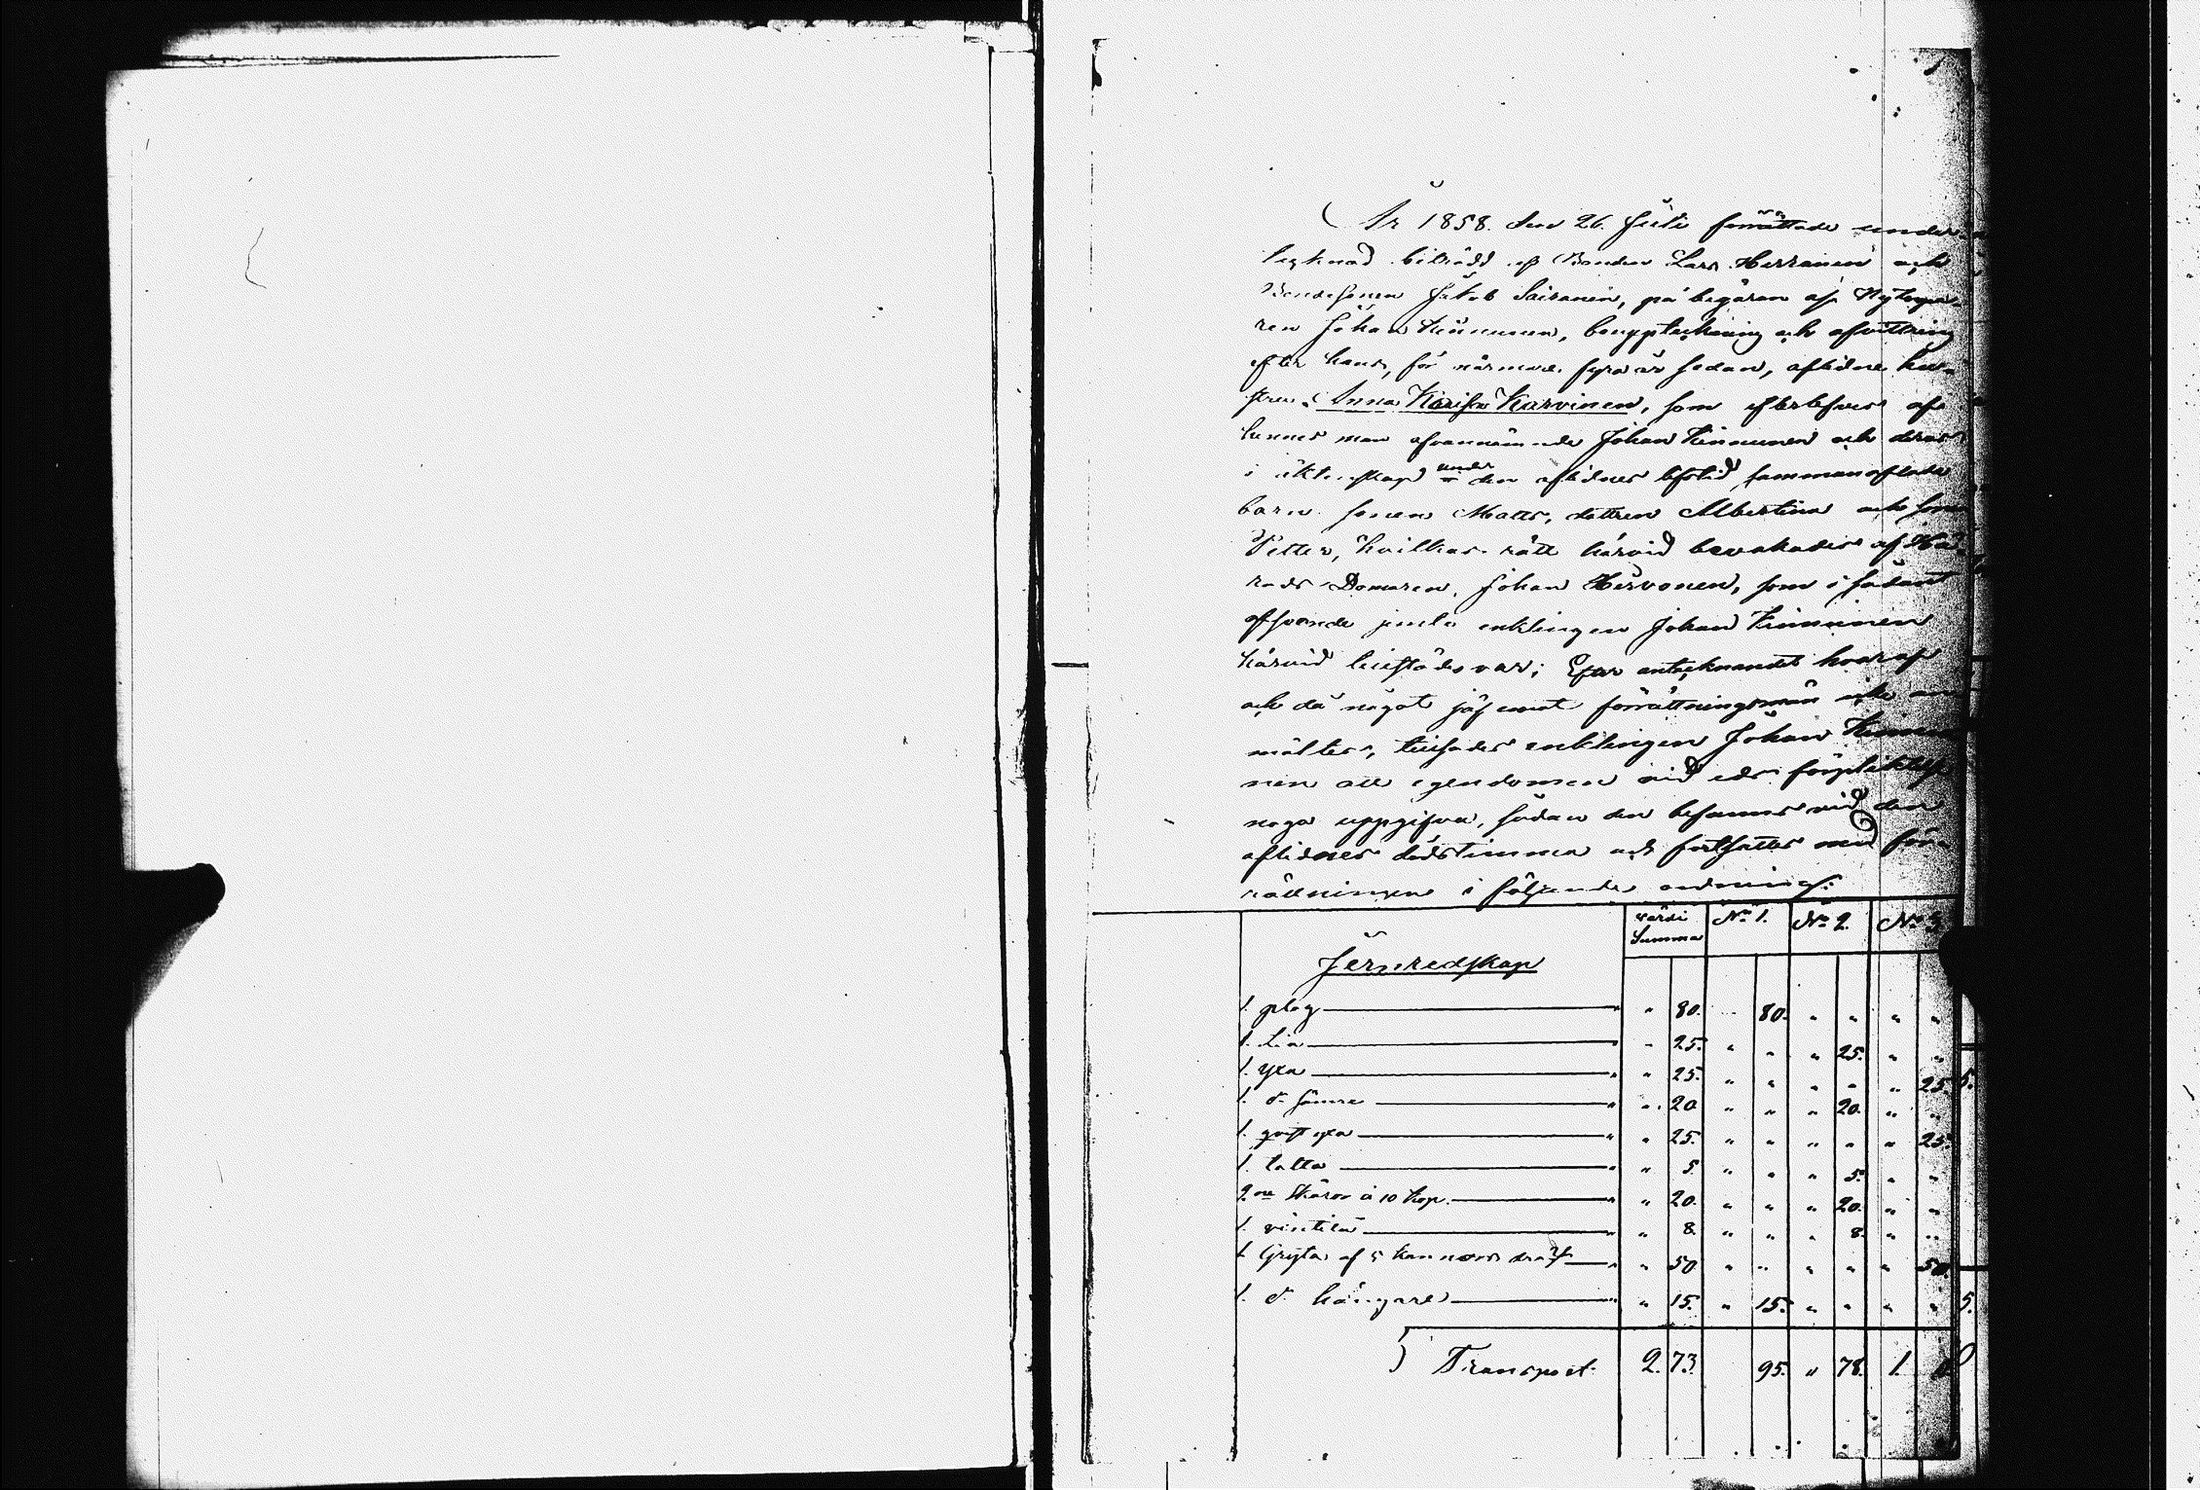 År 1858. den 26. Juli förrättade under-
tecknad biträdd af Bonden Lars Herranen och
Bondesonen Jakob Sairanen, på begäran af Nybygga-
ren Johan Kinnunen, bouppteckning och afvittring
efter hans, för närmare fyra år sedan, aflidne hu-
stru Anna Karvinen, som efterlefves af
hennes man ofvannämnde Johan Kinnunen och deras
i äktenskap under den aflidnes lifstid, sammanaflade
barn sonen Matts, dottren Albertina och sonen
Petter, hvilkas rätt härvid bevakades af Hä-
rads Domaren, Johan Hirvonen, som i sådant
afseende jemte enklingen Johan Kinnunen
härvid tillstädes var; Efter antecknandet hvaraf
och då något jäf emot förrättningsmän icke an-
mältes, tillsades enklingen Johan Kinnu-
nen att egendomen vid eds förpliktelse
noga uppgifva, sådan den befanns vid den
aflidnes dödstimma och fortsattes med för-
rättningen i följande ordning:
värdi Summa No 1. No 2. No 3.
Jernredskap
1. plog " 80. 80. " " " "
1. Lia " 25. " " " 25. " "
1. yxa " 25. " " " " " 25.
1. do sämre " 20 " " " 20. " "
1. yxa " 25. " " " " " 25.
1. talta " 5. " " " 5. " "
2ne Skäror à 10 kop. " 20. " " " 20. " "
1. " 8. " " " 8. " "
1 Gryta af 5 kannors " 50 " " " " " 50.
1. do " 15. " 15. " " " "
Transport 2. 73. 95. " 78. 1.